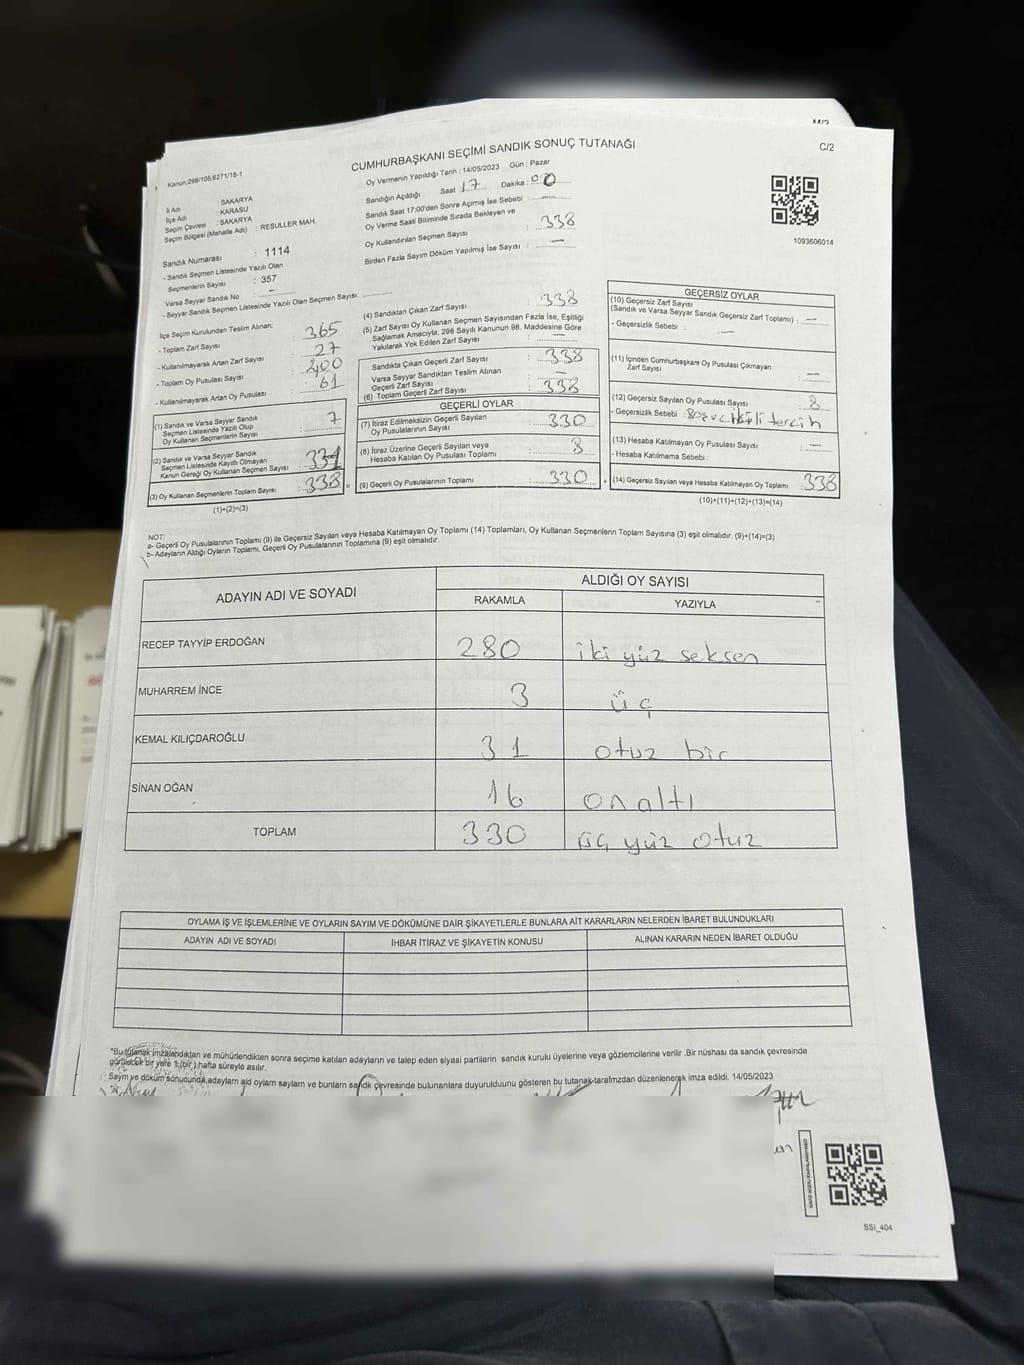 C/2
CUMHURBAŞKANI SEÇİMİ SANDIK SONUÇ TUTANAĞI
Kanun;298/105,6271/18-1
Oy Vermenin Yapıldığı Tarih : 14/05/2023 Gün : Pazar
Sandığın Açıldığı Saat : 17 Dakika : 00
Sandık Saat 17:00'den Sonra Açmış İse Sebebi : —
Oy Verme Saati Bitiminde Sırada Bekleyen ve
Oy Kullandırılan Seçmen Sayısı : 338
Birden Fazla Sayım Döküm Yapılmış İse Sayısı : —
İl Adı : SAKARYA
İlçe Adı : KARASU
Seçim Çevresi : SAKARYA
Seçim Bölgesi (Mahalle Adı) : RESULLER MAH.
1093606014
Sandık Numarası : 1114
- Sandık Seçmen Listesinde Yazılı Olan
Seçmenlerin Sayısı : 357
Varsa Seyyar Sandık No : —
- Seyyar Sandık Seçmen Listesinde Yazılı Olan Seçmen Sayısı:
İlçe Seçim Kurulundan Teslim Alınan;
- Toplam Zarf Sayısı : 365
- Kullanılmayarak Artan Zarf Sayısı : 27
- Toplam Oy Pusulası Sayısı : 400
- Kullanılmayarak Artan Oy Pusulası : 61
(1) Sandık ve Varsa Seyyar Sandık
Seçmen Listesinde Yazılı Olup
Oy Kullanan Seçmenlerin Sayısı : 7
(2) Sandık ve Varsa Seyyar Sandık
Seçmen Listesinde Kayıtlı Olmayan
Kanun Gereği Oy Kullanan Seçmen Sayısı : 331
(3) Oy Kullanan Seçmenlerin Toplam Sayısı : 338
(1)+(2)=(3)
(4) Sandıktan Çıkan Zarf Sayısı : 338
(5) Zarf Sayısı Oy Kullanan Seçmen Sayısından Fazla İse, Eşitliği
Sağlamak Amacıyla; 298 Sayılı Kanunun 98. Maddesine Göre
Yakılarak Yok Edilen Zarf Sayısı : —
Sandıkta Çıkan Geçerli Zarf Sayısı : 338
Varsa Seyyar Sandıktan Teslim Alınan
Geçerli Zarf Sayısı : —
(6) Toplam Geçerli Zarf Sayısı : 338
GEÇERLİ OYLAR
(7) İtiraz Edilmeksizin Geçerli Sayılan
Oy Pusulalarının Sayısı : 330
(8) İtiraz Üzerine Geçerli Sayılan veya
Hesaba Katılan Oy Pusulası Toplamı : 8
(9) Geçerli Oy Pusulalarının Toplamı : 330
GEÇERSİZ OYLAR
(10) Geçersiz Zarf Sayısı
(Sandık ve Varsa Seyyar Sandık Geçersiz Zarf Toplamı) : —
- Geçersizlik Sebebi : —
(11) İçinden Cumhurbaşkanı Oy Pusulası Çıkmayan
Zarf Sayısı : —
(12) Geçersiz Sayılan Oy Pusulası Sayısı : 8
- Geçersizlik Sebebi : tercih
(13) Hesaba Katılmayan Oy Pusulası Sayısı : —
- Hesaba Katılmama Sebebi :
(14) Geçersiz Sayılan veya Hesaba Katılmayan Oy Toplamı : 338
(10)+(11)+(12)+(13)=(14)
NOT:
a- Geçerli Oy Pusulalarının Toplamı (9) ile Geçersiz Sayılan veya Hesaba Katılmayan Oy Toplamı (14) Toplamları, Oy Kullanan Seçmenlerin Toplam Sayısına (3) eşit olmalıdır. (9)+(14)=(3)
b- Adayların Aldığı Oyların Toplamı, Geçerli Oy Pusulalarının Toplamına (9) eşit olmalıdır.
ADAYIN ADI VE SOYADI ALDIĞI OY SAYISI
RAKAMLA YAZIYLA
RECEP TAYYİP ERDOĞAN 280 iki yüz seksen
MUHARREM İNCE 3 üç
KEMAL KILIÇDAROĞLU 31 otuz bir
SİNAN OĞAN 16 on altı
TOPLAM 330 üç yüz otuz
OYLAMA İŞ VE İŞLEMLERİNE VE OYLARIN SAYIM VE DÖKÜMÜNE DAİR ŞİKAYETLERLE BUNLARA AİT KARARLARIN NELERDEN İBARET BULUNDUKLARI
ADAYIN ADI VE SOYADI İHBAR İTİRAZ VE ŞİKAYETİN KONUSU ALINAN KARARIN NEDEN İBARET OLDUĞU
*Bu tutanak imzalandıktan ve mühürlendikten sonra seçime katılan adayların ve talep eden siyasi partilerin sandık kurulu üyelerine veya gözlemcilerine verilir .Bir nüshası da sandık çevresinde
görülecek bir yere 1 (bir) hafta süreyle asılır.
Sayım ve döküm sonucunda,adayların ald oyların sayları ve bunların sandk çevresinde bulunanlara duyurulduunu gösteren bu tutanak tarafmzdan düzenlenerek imza edildi. 14/05/2023
SSİ_404